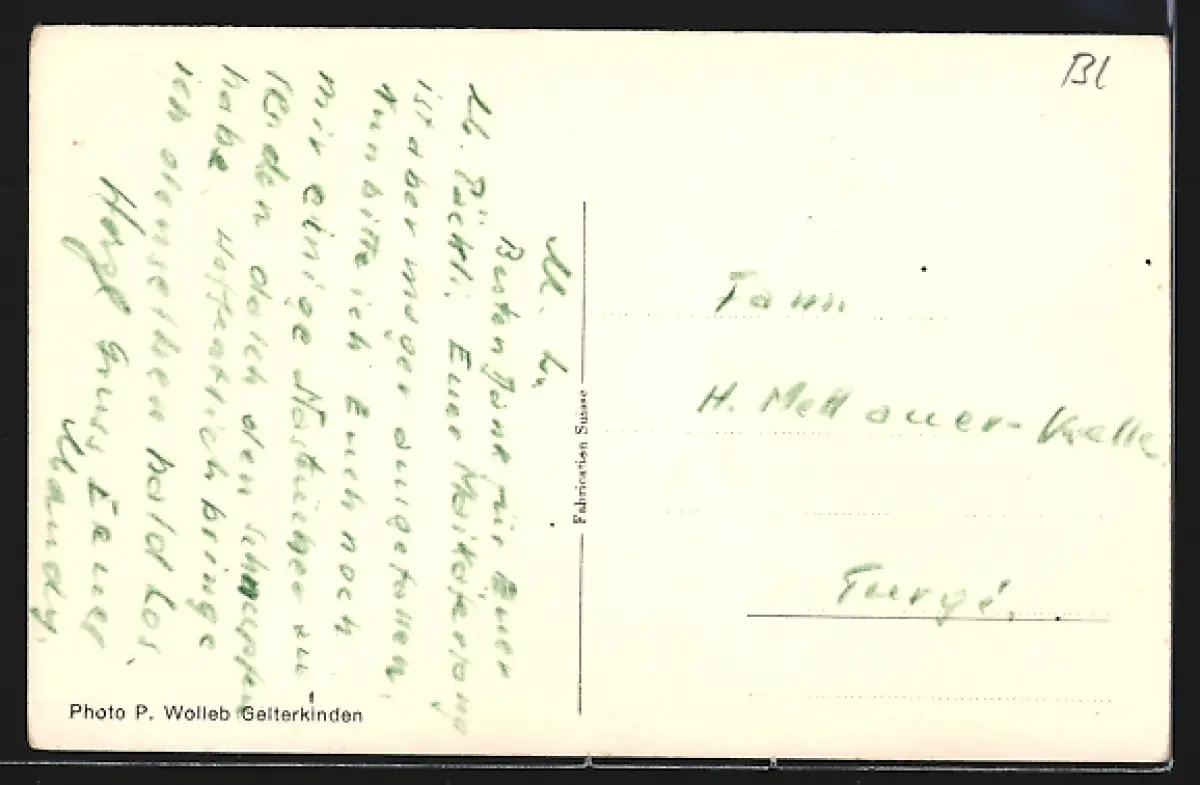 M. L.
Besten Dank für Euer
lb. Päckli. Euer Maikäferlang
ist aber mager ausgefallen.
Nun bitte ich Euch noch
mir einige Nastücher zu
senden da ich den Schnupfen
habe. Hoffentlich bringe
ich denselben bald los.
Herzl Gruss Euer
Photo P. Wolleb Gelterkinden
Fabrication Suisse
BL
Fam.
H. Mettauer-Kelle
Turgi.